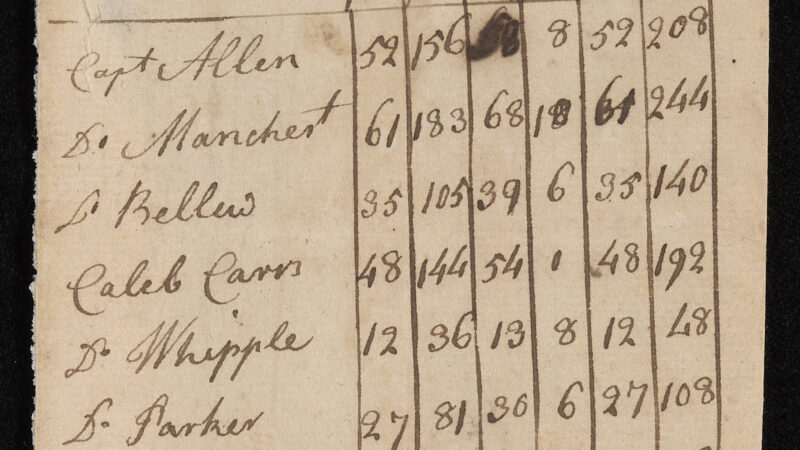 Capt Allen 52 156 58 8 52 208
Do Manchest 61 183 68 18 61 244
Do Bellew 35 105 39 6 35 140
Caleb Carrs 48 144 54 1 48 192
Do Whipple 12 36 13 8 12 48
Do Parker 27 81 30 6 27 108